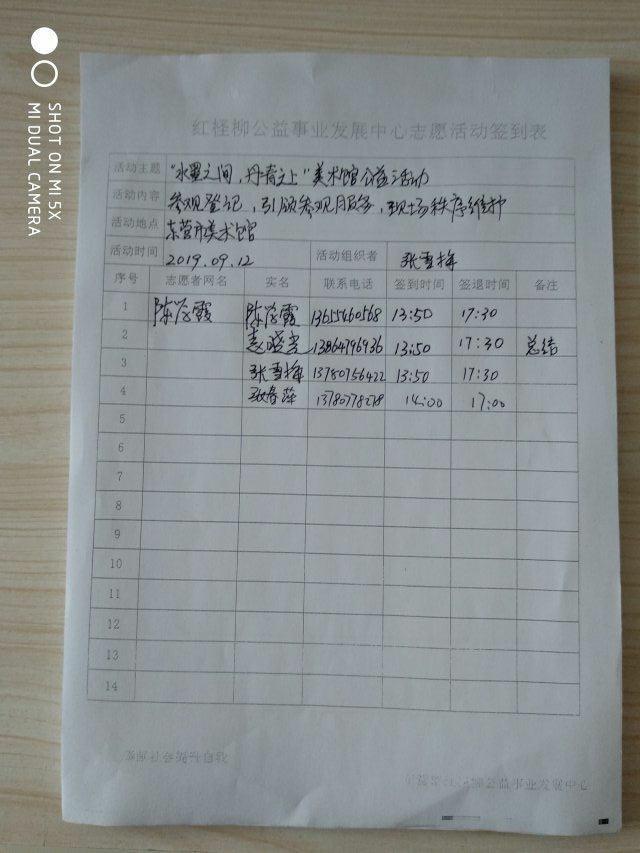 SHOT ON MI 5X
MI DUAL CAMERA
红柽柳公益事业发展中心志愿活动签到表
活动主题 "水墨之间，丹青之上"美术馆公益活动
活动内容 参观登记，引领参观服务，现场秩序维护
活动地点 东营市美术馆
活动时间 2019.09.12 活动组织者 张雪梅
序号 志愿者网名 实名 联系电话 签到时间 签退时间 备注
1 陈学霞 陈学霞 13655460568 13:50 17:30
2 13864796936 13:50 17:30 总结
3 张雪梅 13780756422 13:50 17:30
4 张春萍 13780778278 14:00 17:00
5
6
7
8
9
10
11
12
13
14
奉献社会提升自我
红柽柳公益事业发展中心